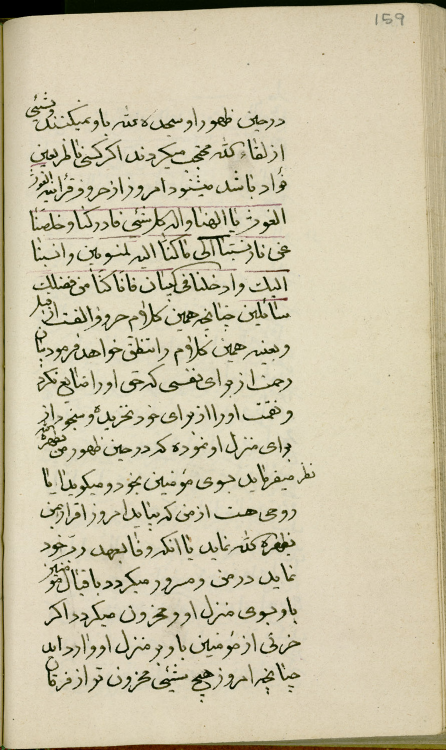 159
در حین ظهور او سجده لله باو نمیکنند و شیئی
از لقاء الله محتجب میکردند اگر کسی ناظر بعین
فؤاد باشد میشنود امروز از حروف قرآنیه الغوث
الغوث یا الهنا واله کل شیئی فادرکنا و خلصنا
عن نار نسبتنا الی ما کنا الیه لمنسوبین وانسبنا
الیک وادخلنا فی کتابک فانا کنا من فضلک
سائلین چنانچه همین کلام حروف الف از قبل
و بعینه همین کلام را نطق خواهد فرمود بیان
رحمت از برای نفسی که حق او را ضایع نکرد
و نقمت او را از برای خود نخریده و سجود از
برای منزل او نموده که در حین ظهور من یظهره
نظر میفرماید بسوی مؤمنین بخود و میکوید ایا
روحی هست از من که بیاید امروز اقرار بمن
یظهره الله نماید یا انکه وفا بعهد رب خود
نماید در من و مسرور میکردد باقبال مؤمنین
باو بسوی منزل او و محزون میکردد اگر
حزنی از مؤمنین باو بر منزل او وارد اید
چنانچه امروز هیچ شیئی محزون تر از فرقان